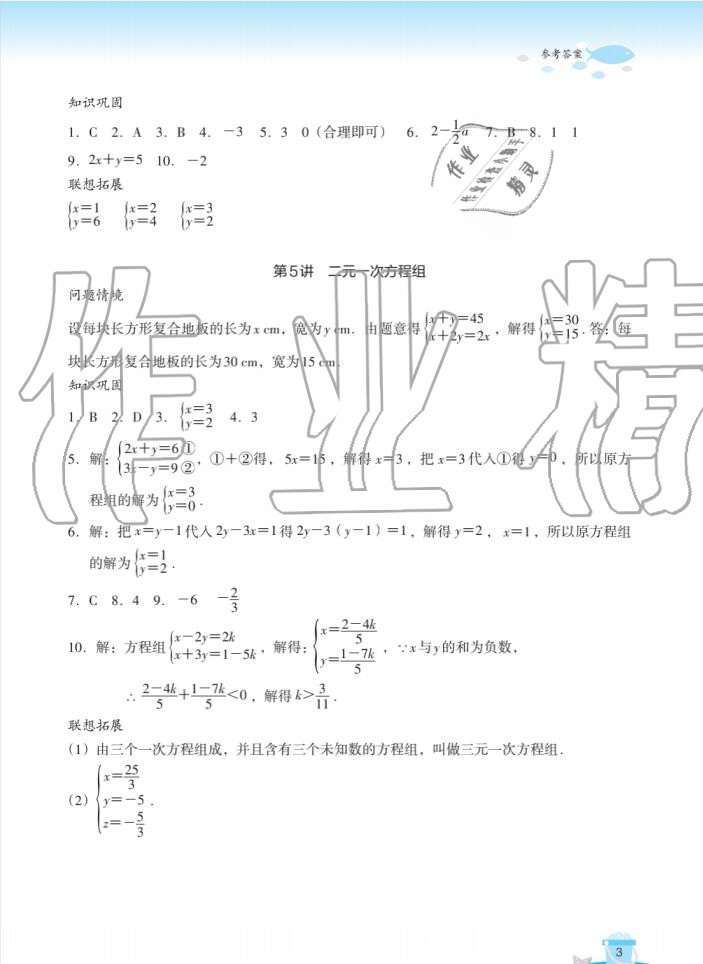 参考答案
知识巩固
1. C 2. A 3. B 4. －3 5. 3 0（合理即可） 6. 2－1/2a 7. B 8. 1 1
9. 2x＋y＝5 10. －2
联想拓展
{x＝1 {x＝2 {x＝3
{y＝6 {y＝4 {y＝2
第5讲 二元一次方程组
问题情境
设每块长方形复合地板的长为x cm，宽为y cm．由题意得{x＋y＝45 x＋2y＝2x，解得{x＝30 y＝15．答：每
块长方形复合地板的长为30 cm，宽为15 cm．
知识巩固
1. B 2. D 3. {x＝3 y＝2 4. 3
5. 解：{2x＋y＝6① 3x－y＝9②，①＋②得，5x＝15，解得x＝3，把x＝3代入①得y＝0，所以原方
程组的解为{x＝3 y＝0．
6. 解：把x＝y－1代入2y－3x＝1得2y－3（y－1）＝1，解得y＝2，x＝1，所以原方程组
的解为{x＝1 y＝2．
7. C 8. 4 9. －6 －2/3
10. 解：方程组{x－2y＝2k x＋3y＝1－5k，解得：{x＝2－4k/5 y＝1－7k/5，∵x与y的和为负数，
∴ 2－4k/5＋1－7k/5＜0，解得k＞3/11．
联想拓展
（1）由三个一次方程组成，并且含有三个未知数的方程组，叫做三元一次方程组．
（2）{x＝25/3 y＝－5 z＝－5/3．
3
作业
作业检查小助手
精灵
作业精